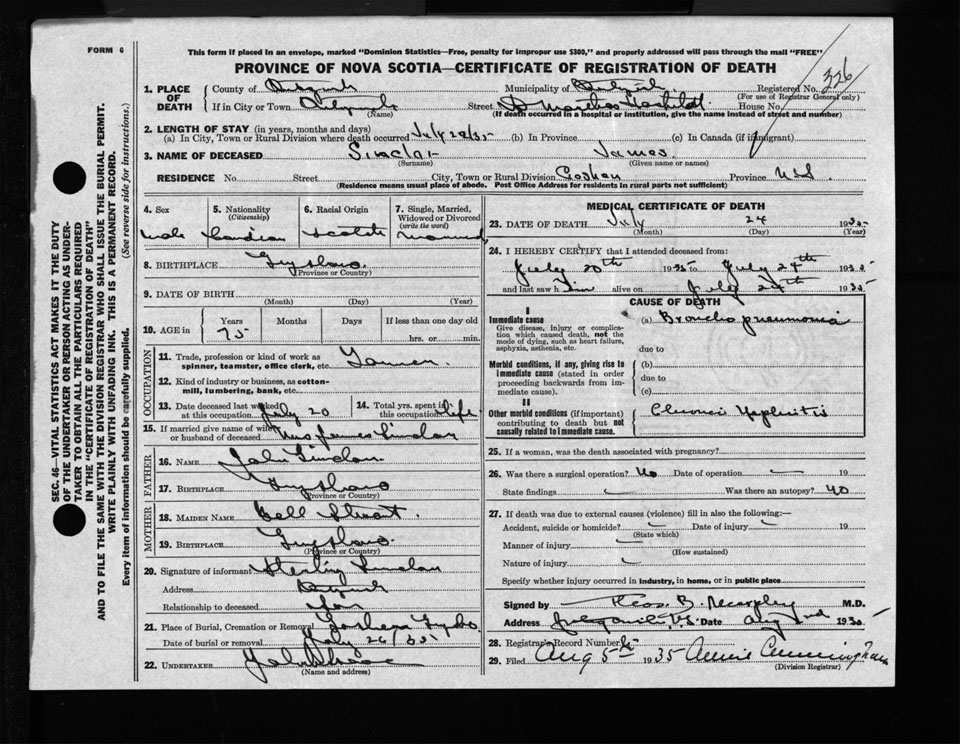 FORM 6
This form if placed in an envelope, marked "Dominion Statistics—Free, penalty for improper use $300," and properly addressed will pass through the mail "FREE"
PROVINCE OF NOVA SCOTIA—CERTIFICATE OF REGISTRATION OF DEATH
326
1. PLACE OF DEATH
County of Municipality of Registered No.
(For use of Registrar General only)
If in City or Town Street House No.
(Name) (If death occurred in a hospital or institution, give the name instead of street and number)
2. LENGTH OF STAY (in years, months and days)
(a) In City, Town or Rural Division where death occurred July 20/35 (b) In Province (c) In Canada (if immigrant)
3. NAME OF DECEASED Sinclair James
(Surname) (Given name or names)
RESIDENCE No. Street City, Town or Rural Division Goshen Province N S
(Residence means usual place of abode. Post Office Address for residents in rural parts not sufficient)
4. Sex male
5. Nationality (Citizenship) Canadian
6. Racial Origin Scotch
7. Single, Married, Widowed or Divorced (write the word) Married
8. BIRTHPLACE Guysboro
(Province or Country)
9. DATE OF BIRTH
(Month) (Day) (Year)
10. AGE in Years Months Days If less than one day old
75 hrs. or min.
OCCUPATION
11. Trade, profession or kind of work as spinner, teamster, office clerk, etc. Farmer
12. Kind of industry or business, as cotton-mill, lumbering, bank, etc.
13. Date deceased last worked at this occupation July 20
14. Total yrs. spent in this occupation life
15. If married give name of wife or husband of deceased Mrs James Sinclair
FATHER
16. NAME John Sinclair
17. BIRTHPLACE Guysboro
(Province or Country)
MOTHER
18. MAIDEN NAME Bell Stewart
19. BIRTHPLACE Guysboro
(Province or Country)
20. Signature of informant Sterling Sinclair
Address
Relationship to deceased Son
21. Place of Burial, Cremation or Removal Goshen Guysbo
Date of burial or removal July 26/35
22. UNDERTAKER
(Name and address)
MEDICAL CERTIFICATE OF DEATH
23. DATE OF DEATH July 24 1935
(Month) (Day) (Year)
24. I HEREBY CERTIFY that I attended deceased from:
July 20th 1935 to July 24th 1935
and last saw him alive on July 24th 1935
CAUSE OF DEATH
I
Immediate cause (a) Broncho pneumonia
Give disease, injury or complication which caused death, not the mode of dying, such as heart failure, asphyxia, asthenia, etc.
due to
Morbid conditions, if any, giving rise to immediate cause (stated in order proceeding backwards from immediate cause).
(b)
due to
(c)
II
Other morbid conditions (if important) contributing to death but not causally related to immediate cause.
Chronic Nephritis
25. If a woman, was the death associated with pregnancy?
26. Was there a surgical operation? No Date of operation 19
State findings Was there an autopsy? NO
27. If death was due to external causes (violence) fill in also the following:—
Accident, suicide or homicide? Date of injury 19
(State which)
Manner of injury
(How sustained)
Nature of injury
Specify whether injury occurred in industry, in home, or in public place
Signed by Thos. B. Murphy M.D.
Address N.S. Date Aug 2nd 1935
28. Registrar's Record Number
29. Filed Aug 5th 1935 Annie Cunningham
(Division Registrar)
SEC. 46—VITAL STATISTICS ACT MAKES IT THE DUTY
OF THE UNDERTAKER OR PERSON ACTING AS UNDER-
TAKER TO OBTAIN ALL THE PARTICULARS REQUIRED
IN THE "CERTIFICATE OF REGISTRATION OF DEATH"
AND TO FILE THE SAME WITH THE DIVISION REGISTRAR WHO SHALL ISSUE THE BURIAL PERMIT.
WRITE PLAINLY WITH UNFADING INK. THIS IS A PERMANENT RECORD.
Every item of information should be carefully supplied. (See reverse side for instructions.)